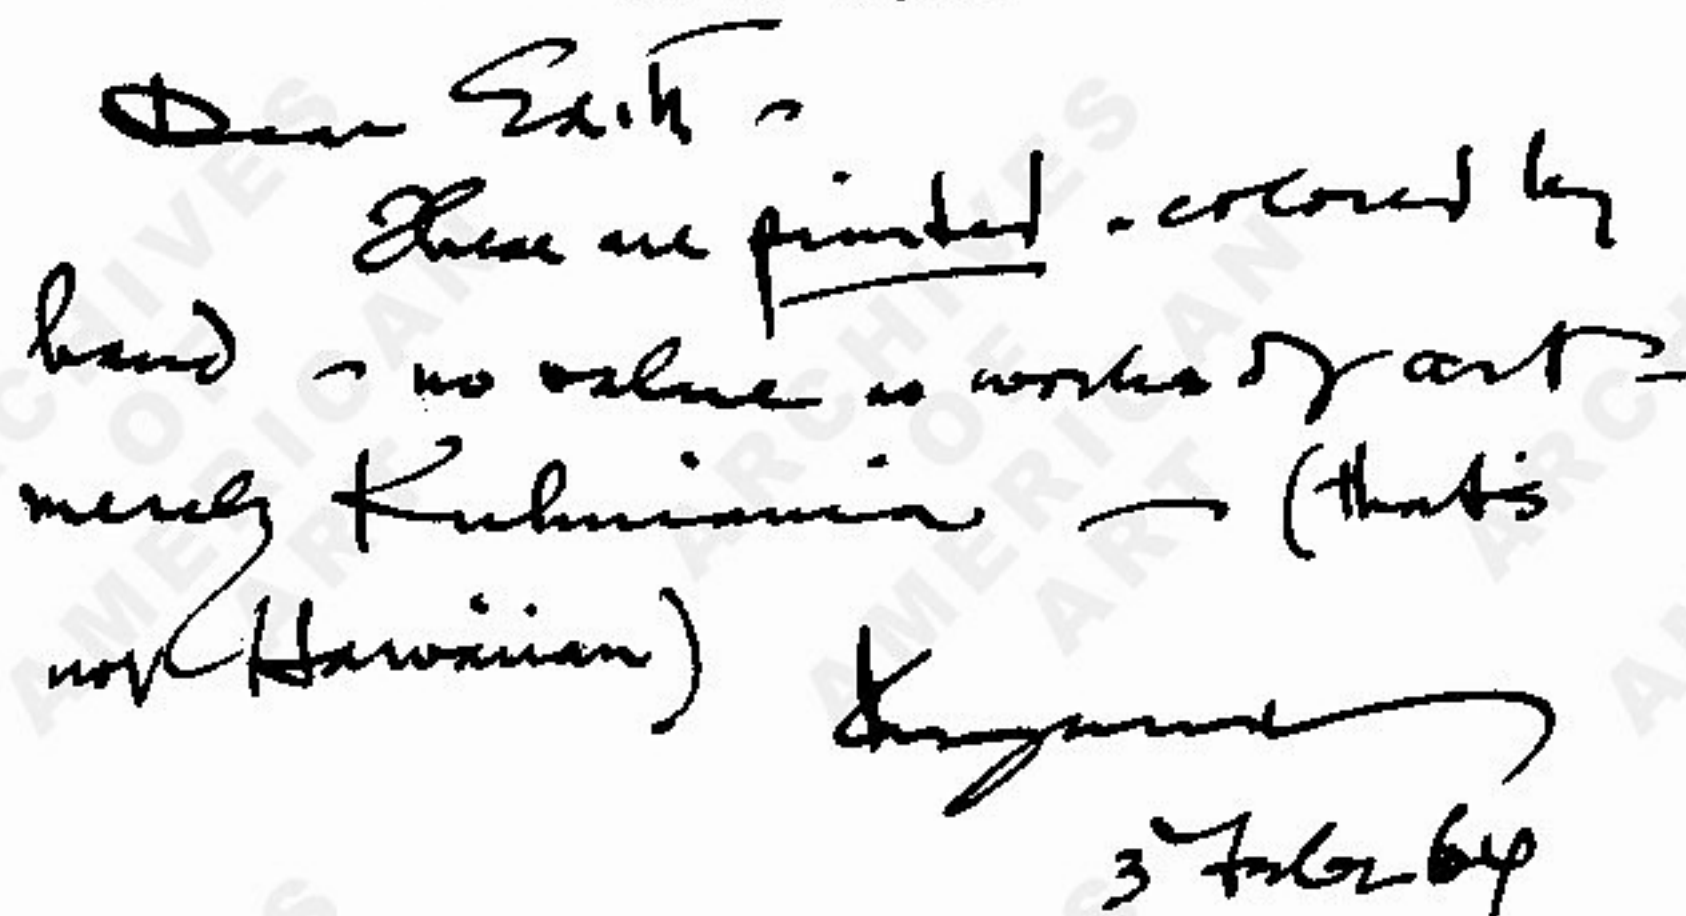 Dear Edith -
These are printed - colored by
hand - no value as works of art -
merely Kuhniania — (that's
not Hawaiian)
3 Feby 64
ARCHIVES OF AMERICAN ART